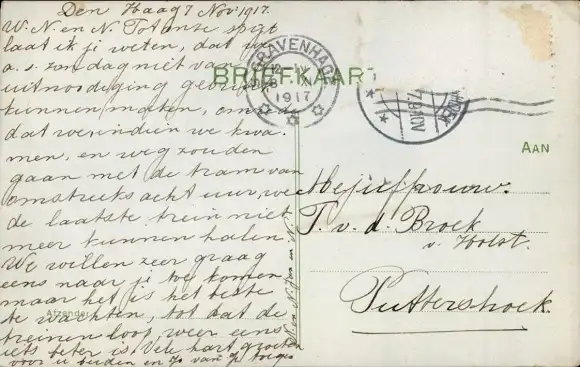 Den Haag 7 Nov: 1917.
W. N. en N. Tot onze spijt
laat ik je weten, dat we
a.s. zondag niet van
uitnoodiging gebruik
kunnen maken, omdat
dat we, indien we kwa-
men, en weg zouden
gaan met de tram van
omstreeks acht uur, we
de laatste trein niet
meer kunnen halen.
We willen zeer graag
eens naar je toe komen
maar het is het beste
te wachten, tot dat de
treinen loop, weer eens
iets beter is. Vele hart. groeten
voor u beiden en Jo van
'S GRAVENHAGE
1917
BRIEFKAART
AAN
Mejuffrouw.
T. v. d. Broek
v. Holst.
Puttershoek.
Afzender